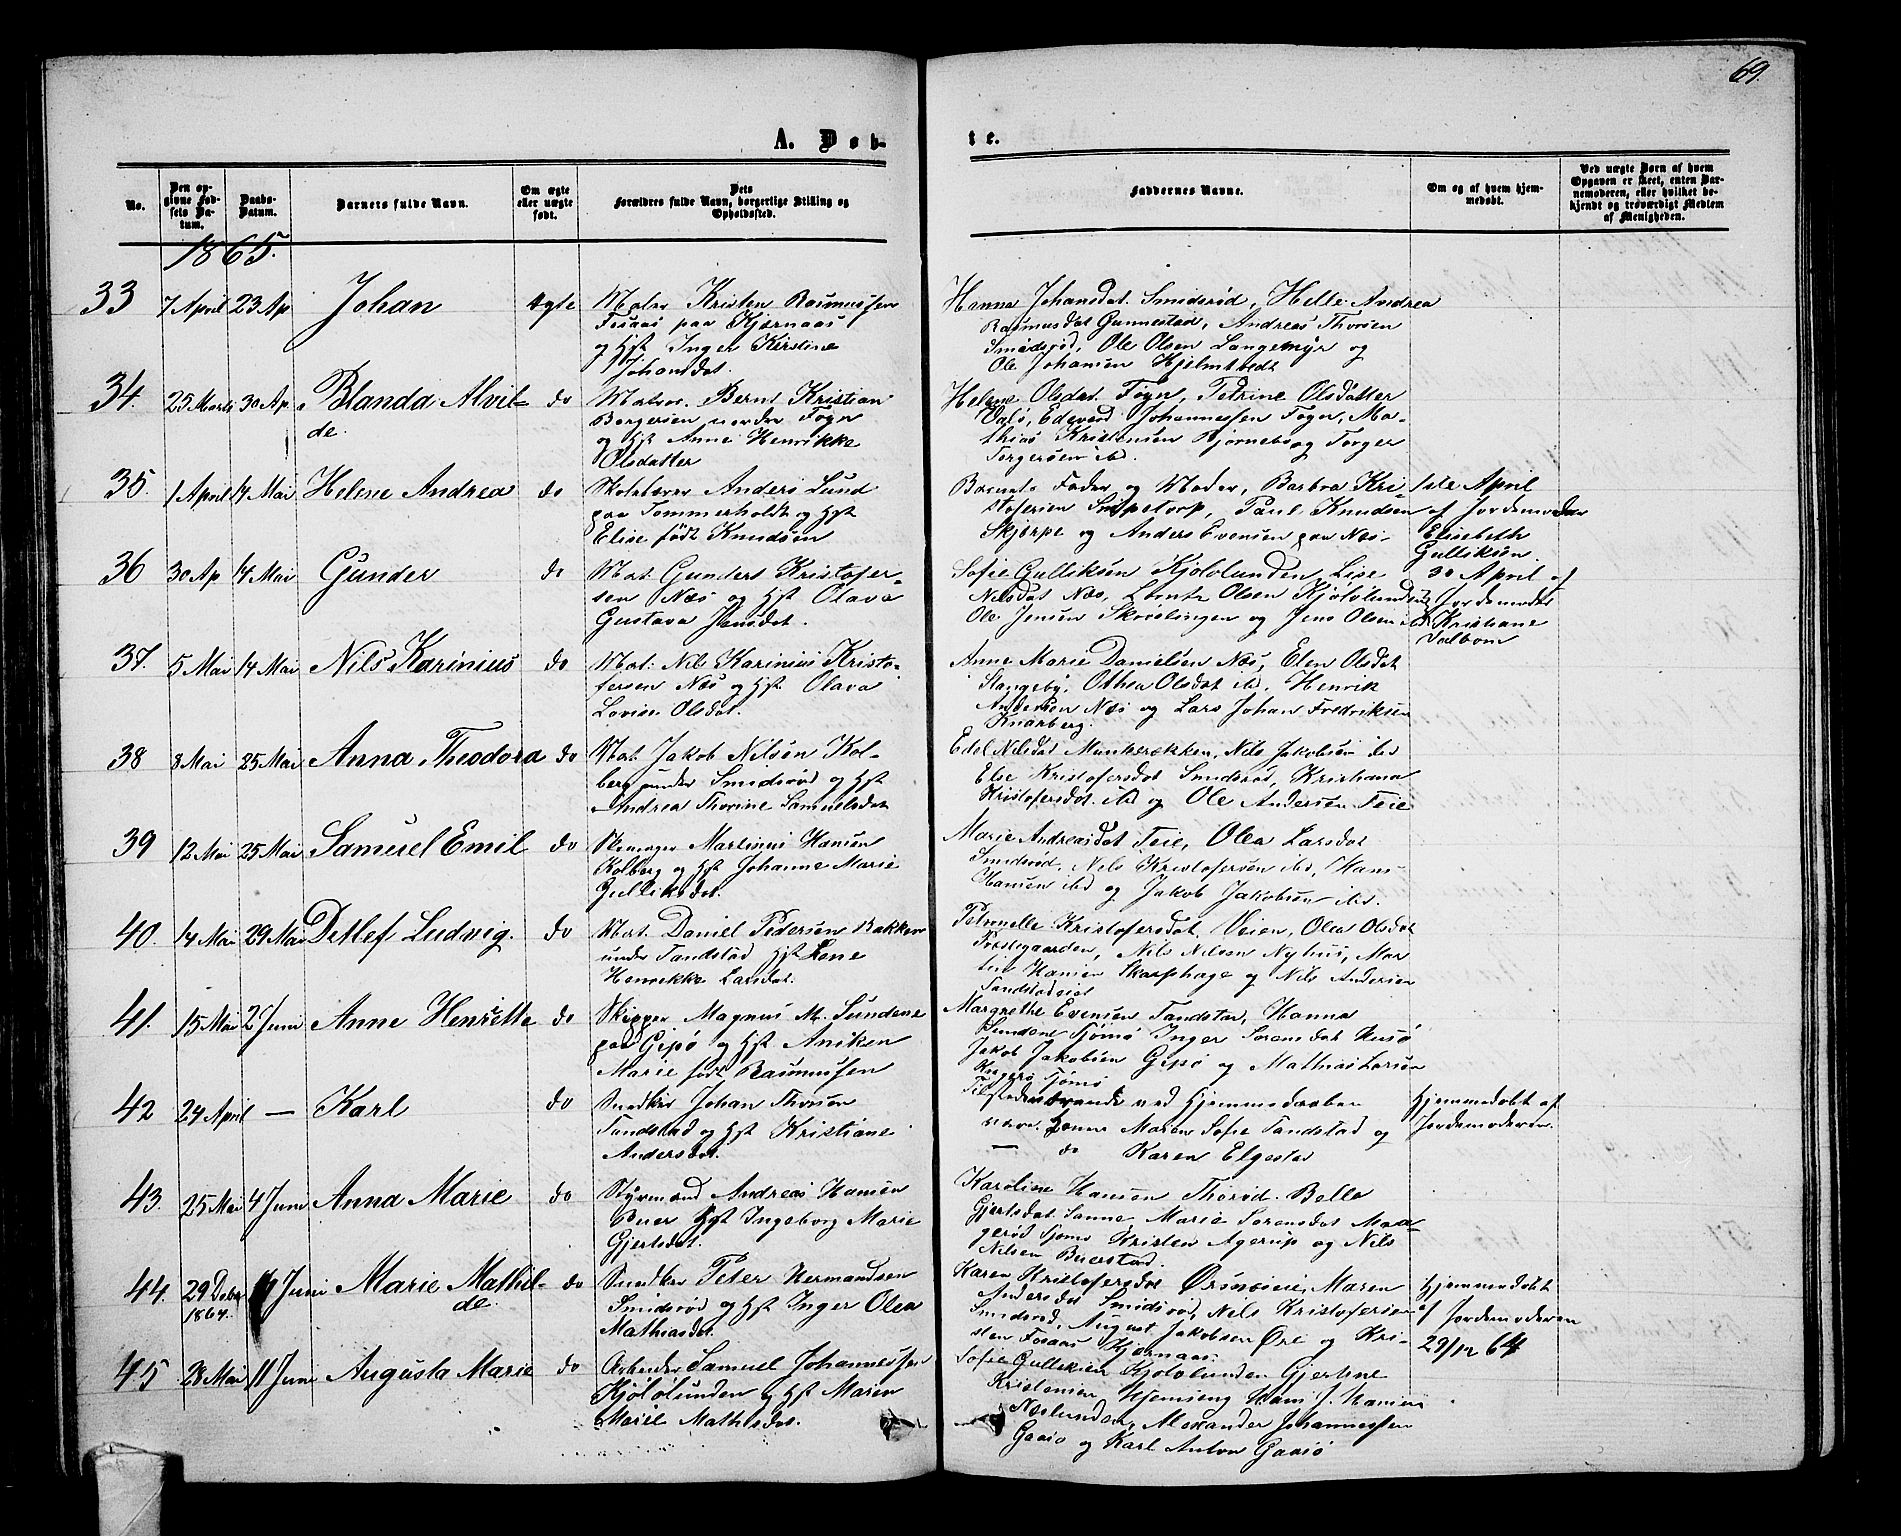 69.
A. Døb-
te.
No.
Den op-
givne Fød-
sels Da-
tum.
Daabs-
Datum.
Barnets fulde Navn.
Om ægte
eller uægte
født.
Dets
Forældres fulde Navn, borgerlige Stilling og
Opholdssted.
Faddernes Navne.
Om og af hvem hjem-
medøbt.
Ved uægte Børn af hvem
Opgaven er skeet, enten Bar-
nemoderen, eller hvilket be-
kjendt og troværdigt Medlem
af Menigheden.
1865.
33 7 April 23 Ap Johan ægte
Matr Kristen Rasmussen
Fosaas paa Kjærnaas
og Hst Inger Kirstine
Johansdat.
Hanna Johansdat. Smidsrød, Helle Andrea
Rasmusdat Gunnestad, Andreas Thorsen
Smidsrød, Ole Olsen Langemyr og
Ole Johansen Hjelmtvedt
34. 25 Marts 30 Ap. Blanda Alvil-
de. do
Matros. Bernt Kristian
Borgersen nordre Føgn
og Hst Anne Henrikke
Olsdatter
Helene Olsdat. Føgn, Petrine Olsdatter
Valø, Edevard Johannessen Føgn, Ma-
thias Kristensen Bjørnebo og Torger
Torgersen ibd.
35. 1 April 14 Mai Helene Andrea do
Skolelærer Anders Lund
paa Tommerholdt og Hst
Elise født Knudsen
Barnets Fader og Moder, Barbra Kri-
stofersen Snipetorp, Paul Knudsen
Skjerpe og Anders Evensen paa Næs.
1ste April
af Jordemoder
Elisebeth
Gulliksen.
36 30 Ap 14 Mai Gunder do
Mat. Gunders Kristofer-
sen Næs og Hst Olava
Gustava Jensdat.
Sofie Gulliksen Kjølolunden, Lise
Nilsdat Næs, Lorntz Olsen Kjølolunden,
Ole Jensen Skrøslingen og Jens Olsen ibd
30 April af
Jordemoder
Kristiane
Valbom
37. 5 Mai 14 Mai Nils Karinius do
Mat: Nils Karinius Kristo-
fersen Næs og Hst. Olava
Lovise Olsdat.
Anne Marie Danielsen Næs, Elen Olsdat
Stangeby, Othea Olsdat ibd. Henrik
Andersen Næs og Lars Johan Fredriksen
Knarberg.
38 8 Mai 25 Mai Anna Theodora do
Mat Jakob Nilsen Kol-
berg under Smidsrød og Hst
Andrea Thorine Samuelsdat
Edel Nilsdat Munkerekken, Nils Jakobsen ibd
Else Kristofersdat Smidsrød, Kristiana
Kristofersdat. ibd og Ole Andersen Teie
39 12 Mai 25 Mai Samuel Emil do
Skomager Martinius Hansen
Kolberg og Hst Johanne Marie
Gulliksdat.
Marie Andreasdat Teie, Olea Larsdat
Smidsrød, Nils Kristofersen ibd, Hans
Hansen ibd og Jakob Jakobsen ibd.
40. 14 Mai 29 Mai Detlef Ludvig. do
Mat. Daniel Pedersen Bakken
under Tandstad Hst Lene
Henrikke Larsdat.
Petronelle Kristofersdat. Veien, Olea Olsdat
Præstegaarden, Nils Nilsen Nyhus, Mar
tin Hansen Skarphage og Nils Andersen
41. 15 Mai 2 Juni Anne Henriette do
Skipper Magnus M. Sundene
paa Gipø og Hst Aniken
Marie født Rasmussen
Margrethe Evensen Tandstad, Hanna
Sundene Tjømø Inger Sorensdat Husø
Jakob Jakobsen Gipø og Mathias Larsen
Tjømø
42 24 April — Karl do
Snedker Johan Thorsen
Tandstad og Hst Kristiane
Andersdat.
Tilstedeværende ved Hjemmedaaben
vare Maren Sofie Tandstad og
— do Karen Elgestad
Hjemmedøbt af
Jordemoderen.
43. 25 Mai 4 Juni Anna Marie do
Styrmand Andreas Hansen
Buer Hst Ingeborg Marie
Gjertsdat.
Karoline Hansen Thorød. Belle
Gjertsdat. Sanne, Marie Sorensdat Maa-
gerød Tjømø Kristen Agerup og Nils
Nilsen Buerstad.
44. 29 Debr
1864. Juni Marie Mathil-
de. do
Snedker Peter Hermandsen
Smidsrød og Hst Inger Olea
Mathiasdat
Karen Kristofersdat Ørsnæseie, Maren
Andersdat Smidsrød, Nils Kristofersen
Smidsrød, August Jakobsen Øre og Kri-
sten Fosaas Kjærnaas.
Hjemmedøbt
af Jordemoderen
29/12 64
45 28 Mai 11 Juni Augusta Marie do
Arbeider Samuel Johannessen
Kjølolunden og Hst Maren
Marie Mathisdat.
Sofie Gulliksen Kjølolunden Gjertine
Kristensen Hjemseng Hans J. Hansen
Næslunden, Alexander Johannessen
Gaasø og Karl Anton Gaasø